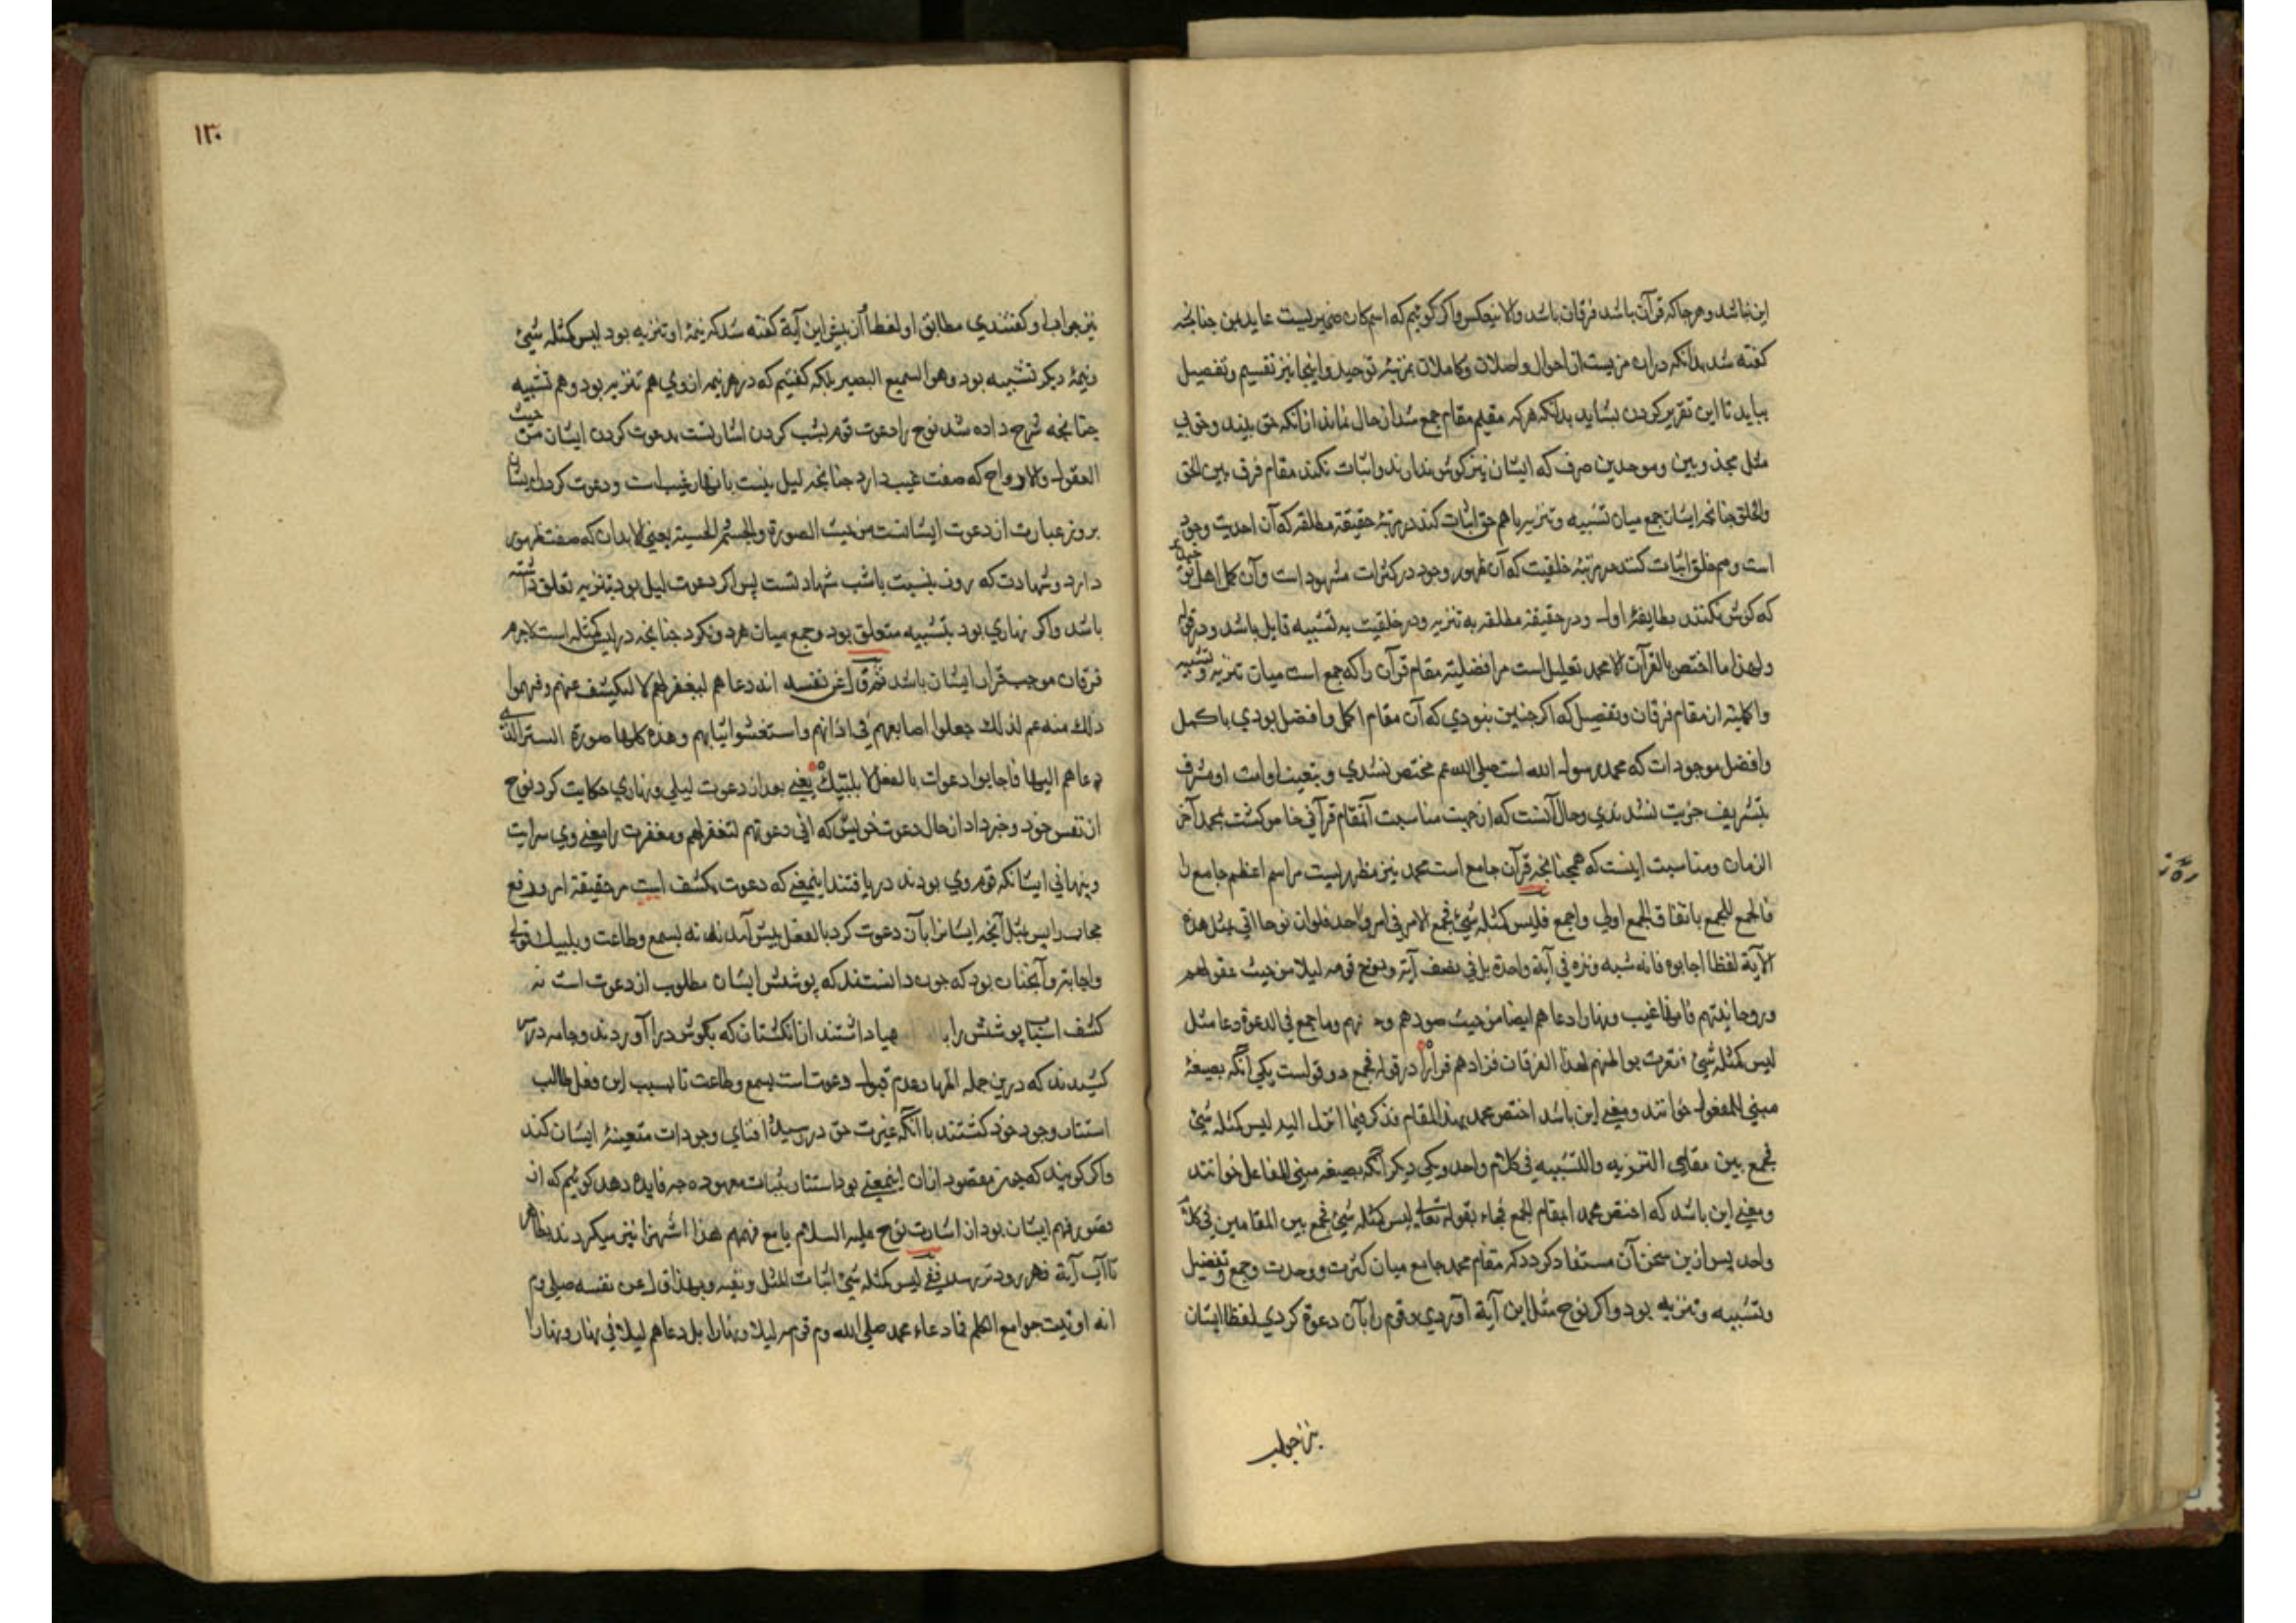 این نباشد و هر جا که قرآن باشد فرقان باشد والا ینعکس واکر کوئیم که اسم کان ضمیریست عاید بدین جنانجه
کفته شد بدانکه درین مزیست از احوال واصلان وکاملان بمرتبۀ توحید واینجا نیز تقسیم وتفصیل
بباید تا این تقریر کردن بشاید بدانکه هرکه مقیم مقام جمع شد از حال نماند از آنکه حق بیند وخلق نی
مثل مجذوبین وموحدین صرف که ایشان نیز کوش ندارند واثبات نکنند مقام فرق بین الحق
والخلق جنانجه ایشان جمع میان تشبیه وتنزیه باهم حق اثبات کند در مرتبۀ حقیقة مطلقه که آن احدیت وجود
است وهم خلق اثبات کنند در مرتبۀ خلقیت که آن ظهور وجود در کثرات مشهود است وآن کمل اهل
که کوش نکنند بطایفۀ اول ودر حقیقة مطلقه به تنزیه ودر خلقیت به تشبیه قایل باشد
ولهذا ما اختص بالقرآن الا محمد تعلیل است مر افضلیة مقام قرآن را که جمع است میان تنزیه وتشبیه
واکملیة از مقام فرقان وتفصیل که اکر جنین نبودي که آن مقام اکمل وافضل بودي باکمل
وافضل موجودات که محمد رسول الله است صلی الله عم مختص نشدي وبتعیت او امت او مشرف
بتشریف خریت نشدندي وحال آنست که از جهت مناسبت آنمقام قرآنی خاص کشت بمحمد آخر
الزمان ومناسبت اینست که همجنانجه قرآن جامع است محمد نیز مظهریست مر اسم اعظم جامع را
فالجمع للجمع باتفاق الجمع اولي واجمع فلیس کمثله شیئ بجمع الامر فی امر واحد فلو ان نوحا اتی بمثل هذه
الآیة لفظا اجابوه فانه شبه ونزه فی آیة واحدة بل فی نصف آیة ونوح قومه لیلا من حیث عقولهم
وروحانیتهم فانها غیب ونهارا دعاهم ایضا من حیث صورهم وجـ نهم وما جمع فی الدعوة دعا مثل
لیس کمثله شیئ فنفرت بواطنهم لهذا الفرقان فزادهم فرارا در قوله فجمع دو قولست یکی آنکه بصیغۀ
مبنی للمفعول خوانند ومعنی این باشد اختص محمد بهذا المقام فذکر فیما انزل الیه لیس کمثله شیئ
فجمع بین مقامی التنزیه والتشبیه فی کلام واحد ویکی دیکر آنکه بصیغه مبنی للفاعل خوانند
ومعنی این باشد که اختص محمد بمقام الجمع فجاء بقوله تعالی لیس کمثله شیئ فجمع بین المقامین فی کلام
واحد پس ازین سخن آن مستفاد کردد که مقام محمد جامع میان کثرت ووحدت وجمع وتفصیل
وتشبیه وتنزیه بود واکر نوح مثل این آیة آوردي وقوم را بآن دعوة کردي لفظا ایشان
نیز جواب
۱۳۰
نیز جواب او کفتندي مطابق او لفظا آن پیش این آیة کفته شد که نیمۀ او تنزیه بود لیس کمثله شیئ
ونیمۀ دیکر تشبیه بود وهو السمیع البصیر بلکه کفتیم که در هر نیمه از وي هم تنزیه بود وهم تشبیه
جنانجه شرح داده شد نوح را دعوت قوم بشب کردن اشارتست بدعوت کردن ایشان من حیث
العقول والارواح که صفت غیب دارد جنانجه لیل بنسبت با نهار غیب است ودعوت کردن ایشان
بروز عبارت از دعوت ایشانست من حیث الصورة والجسم الحسیة یعنی الابدان که صفت ظهور
دارد وشهادت که روز بنسبت باشب شهادتست پس اکر دعوت لیل بود بتنزیه تعلق داشته
باشد واکر نهاري بود بتشبیه متعلق بود وجمع میان هر دو نکرد جنانجه در لیس کمثله است لاجرم
فرقان موجب فرار ایشان باشد ثم قال عن نفسه انه دعاهم لیغفر لهم لا لیکشف عنهم وفهموا
ذلک منه عم لذلک جعلوا اصابعهم فی اذانهم واستغشوا ثیابهم وهذه کلها صورة الستر التی
دعاهم الیها فاجابوا دعوته بالفعل لا بلبیک یعنی بعد از دعوت لیلی ونهاري حکایت کرد نوح
از نفس خود وخبر داد از حال دعوت خویش که انی دعوتهم لتغفر لهم ومغفرت را معنی وي سرایت
وپنهانی ایشانکه قوم وي بودند دریافتند اینمعنی که دعوت مکشف است مر حقیقة امر ورفع
حجاب را پس بمثل آنجه ایشانرا بآن دعوت کرد بالفعل پیش آمدند نه بسمع وطاعت وبلبیک قولی
واجابة وآنجنان بود که جون دانستند که پوشش ایشان مطلوب از دعوت است نه
کشف اسباب پوشش را با مهیا داشتند از انکشتان که بکوش در آوردند وجامه در سر
کشیدند که درین جمله اظهار عدم قبول دعوتست بسمع وطاعت تا بسبب این فعل طالب
استتار وجود خود کشتند با آنکه غیرت حق در رسید افنای وجودات متعینۀ ایشان کند
واکر کویند که جون مقصود ازان اینمعنی بود استتار بثیاب معهوده جه فایده دهد کوئیم که از
قصور فهم ایشان بود از اشارت نوح علیه السلام با مع فهمهم هذا اشهزا نیز میکردند بظاهر
تا آب آیة قهر زود تر برسد ففی لیس کمثله شیئ اثبات المثل ونفیه وبهذا قال عن نفسه صلی وم
انه اوتیت جوامع الکلم فما دعاء محمد صلی الله وم قومه لیلا ونهارا بل دعاهم لیلا فی نهار ونهارا